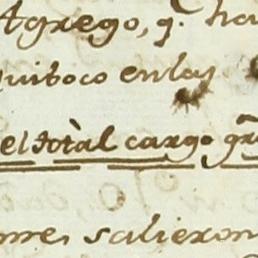 Agrego, q.^e ha
quiboco en las
el totàl cargo gra
ome, salieron